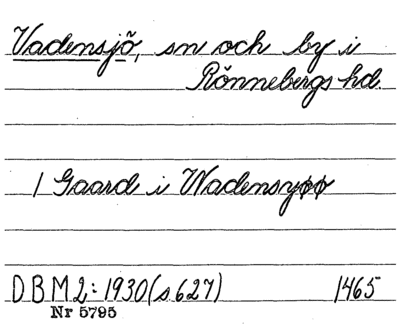 Vadensjö, sn och by i
Rönnebergs hd.
1 Gaard i Wadensyøø
DBM2:1930(s.627) 1465
Nr 5795